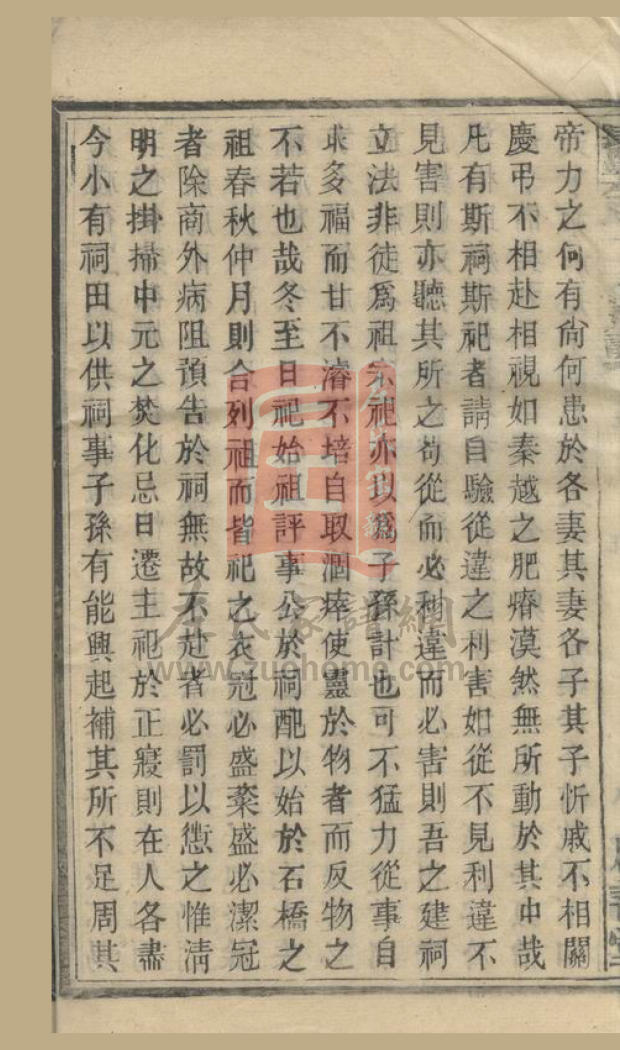 帝力之何有尙何患於各妻其妻各子其子忻戚不相關
慶弔不相赴相視如秦越之肥瘠漠然無所動於其中哉
凡有斯祠斯祀者請自驗從違之利害如從不見利違不
見害則亦聽其所之苟從而必利違而必害則吾之建祠
立法非徒爲祖宗祀亦以爲子孫計也可不猛力從事自
求多福而甘不濬不培自取涸瘁使靈於物者而反物之
不若也哉冬至日祀始祖評事公於祠配以始於石橋之
祖春秋仲月則合列祖而皆祀之衣冠必盛粢盛必潔冠
者除商外病阻預告於祠無故不赴者必罰以懲之惟淸
明之掛掃中元之焚化忌日遷主祀於正寢則在人各盡
今小有祠田以供祠事子孫有能興起補其所不足周其
左氏家譜網
www.zuohome.com